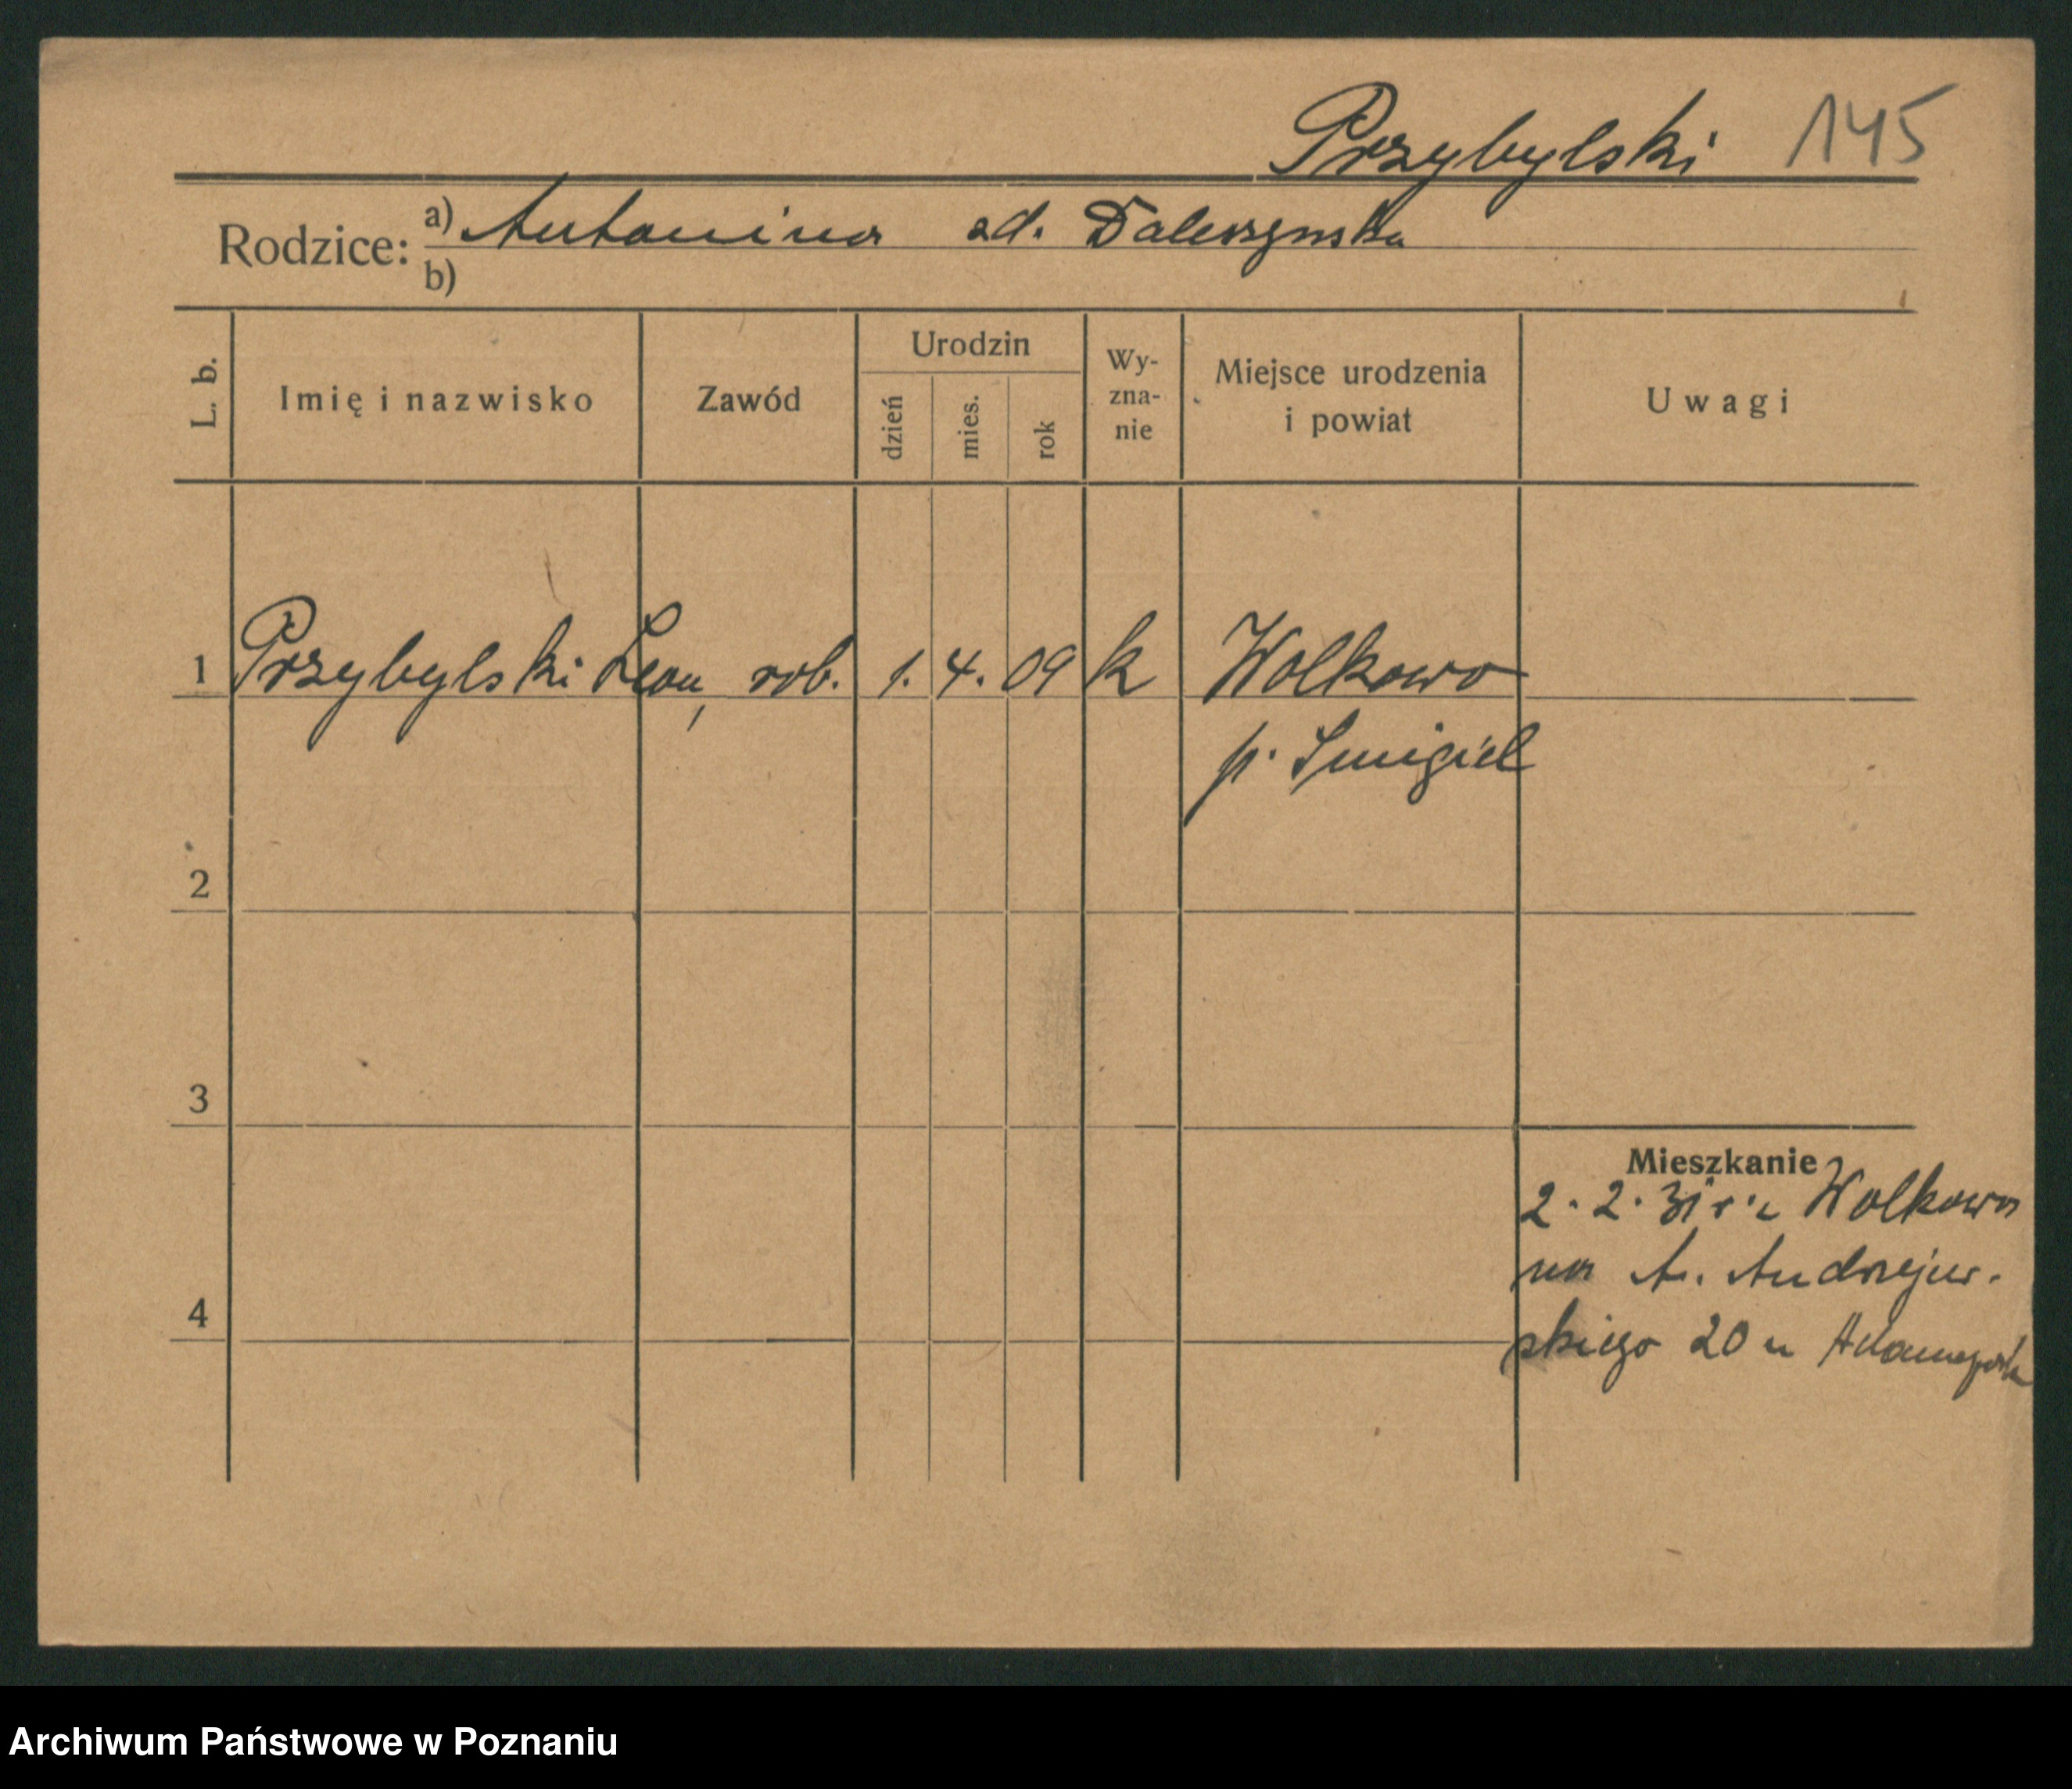 Przybylski 145
Rodzice: a) Antonina zd. Daleszynska
b)
L. b. Imię i nazwisko Zawód Urodzin dzień mies. rok Wy-zna-nie Miejsce urodzenia i powiat Uwagi
1 Przybylski Leon, rob. 1. 4. 09 k Wolkowo
p. Smigiel
2
3
Mieszkanie
2. 2. 31 r. z Wolkowa
na A. Andrzejew-
4
skiego 20 u
Archiwum Państwowe w Poznaniu